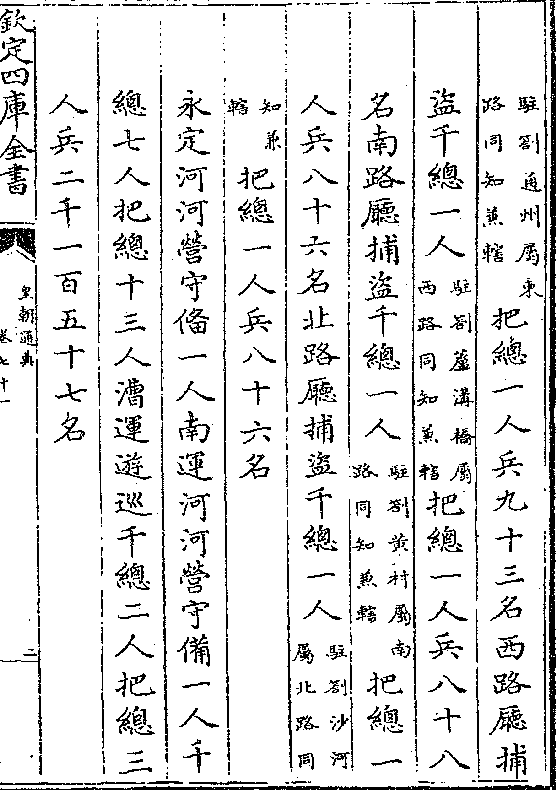 駐劄通州屬東路同知兼轄把總一人兵九十三名西路廳捕
盜千總一人駐劄蘆溝橋屬西路同知兼轄把總一人兵八十八
名南路廳捕盜千總一人駐劄黃村屬南路同知兼轄把總一
人兵八十六名北路廳捕盜千總一人駐劄沙河屬北路同
知兼轄把總一人兵八十六名
永定河河營守俻一人南運河河營守備一人千
總七人把總十三人漕運遊巡千總二人把總三
人兵二千一百五十七名
欽定四庫全書
皇朝通典
卷七十一
二